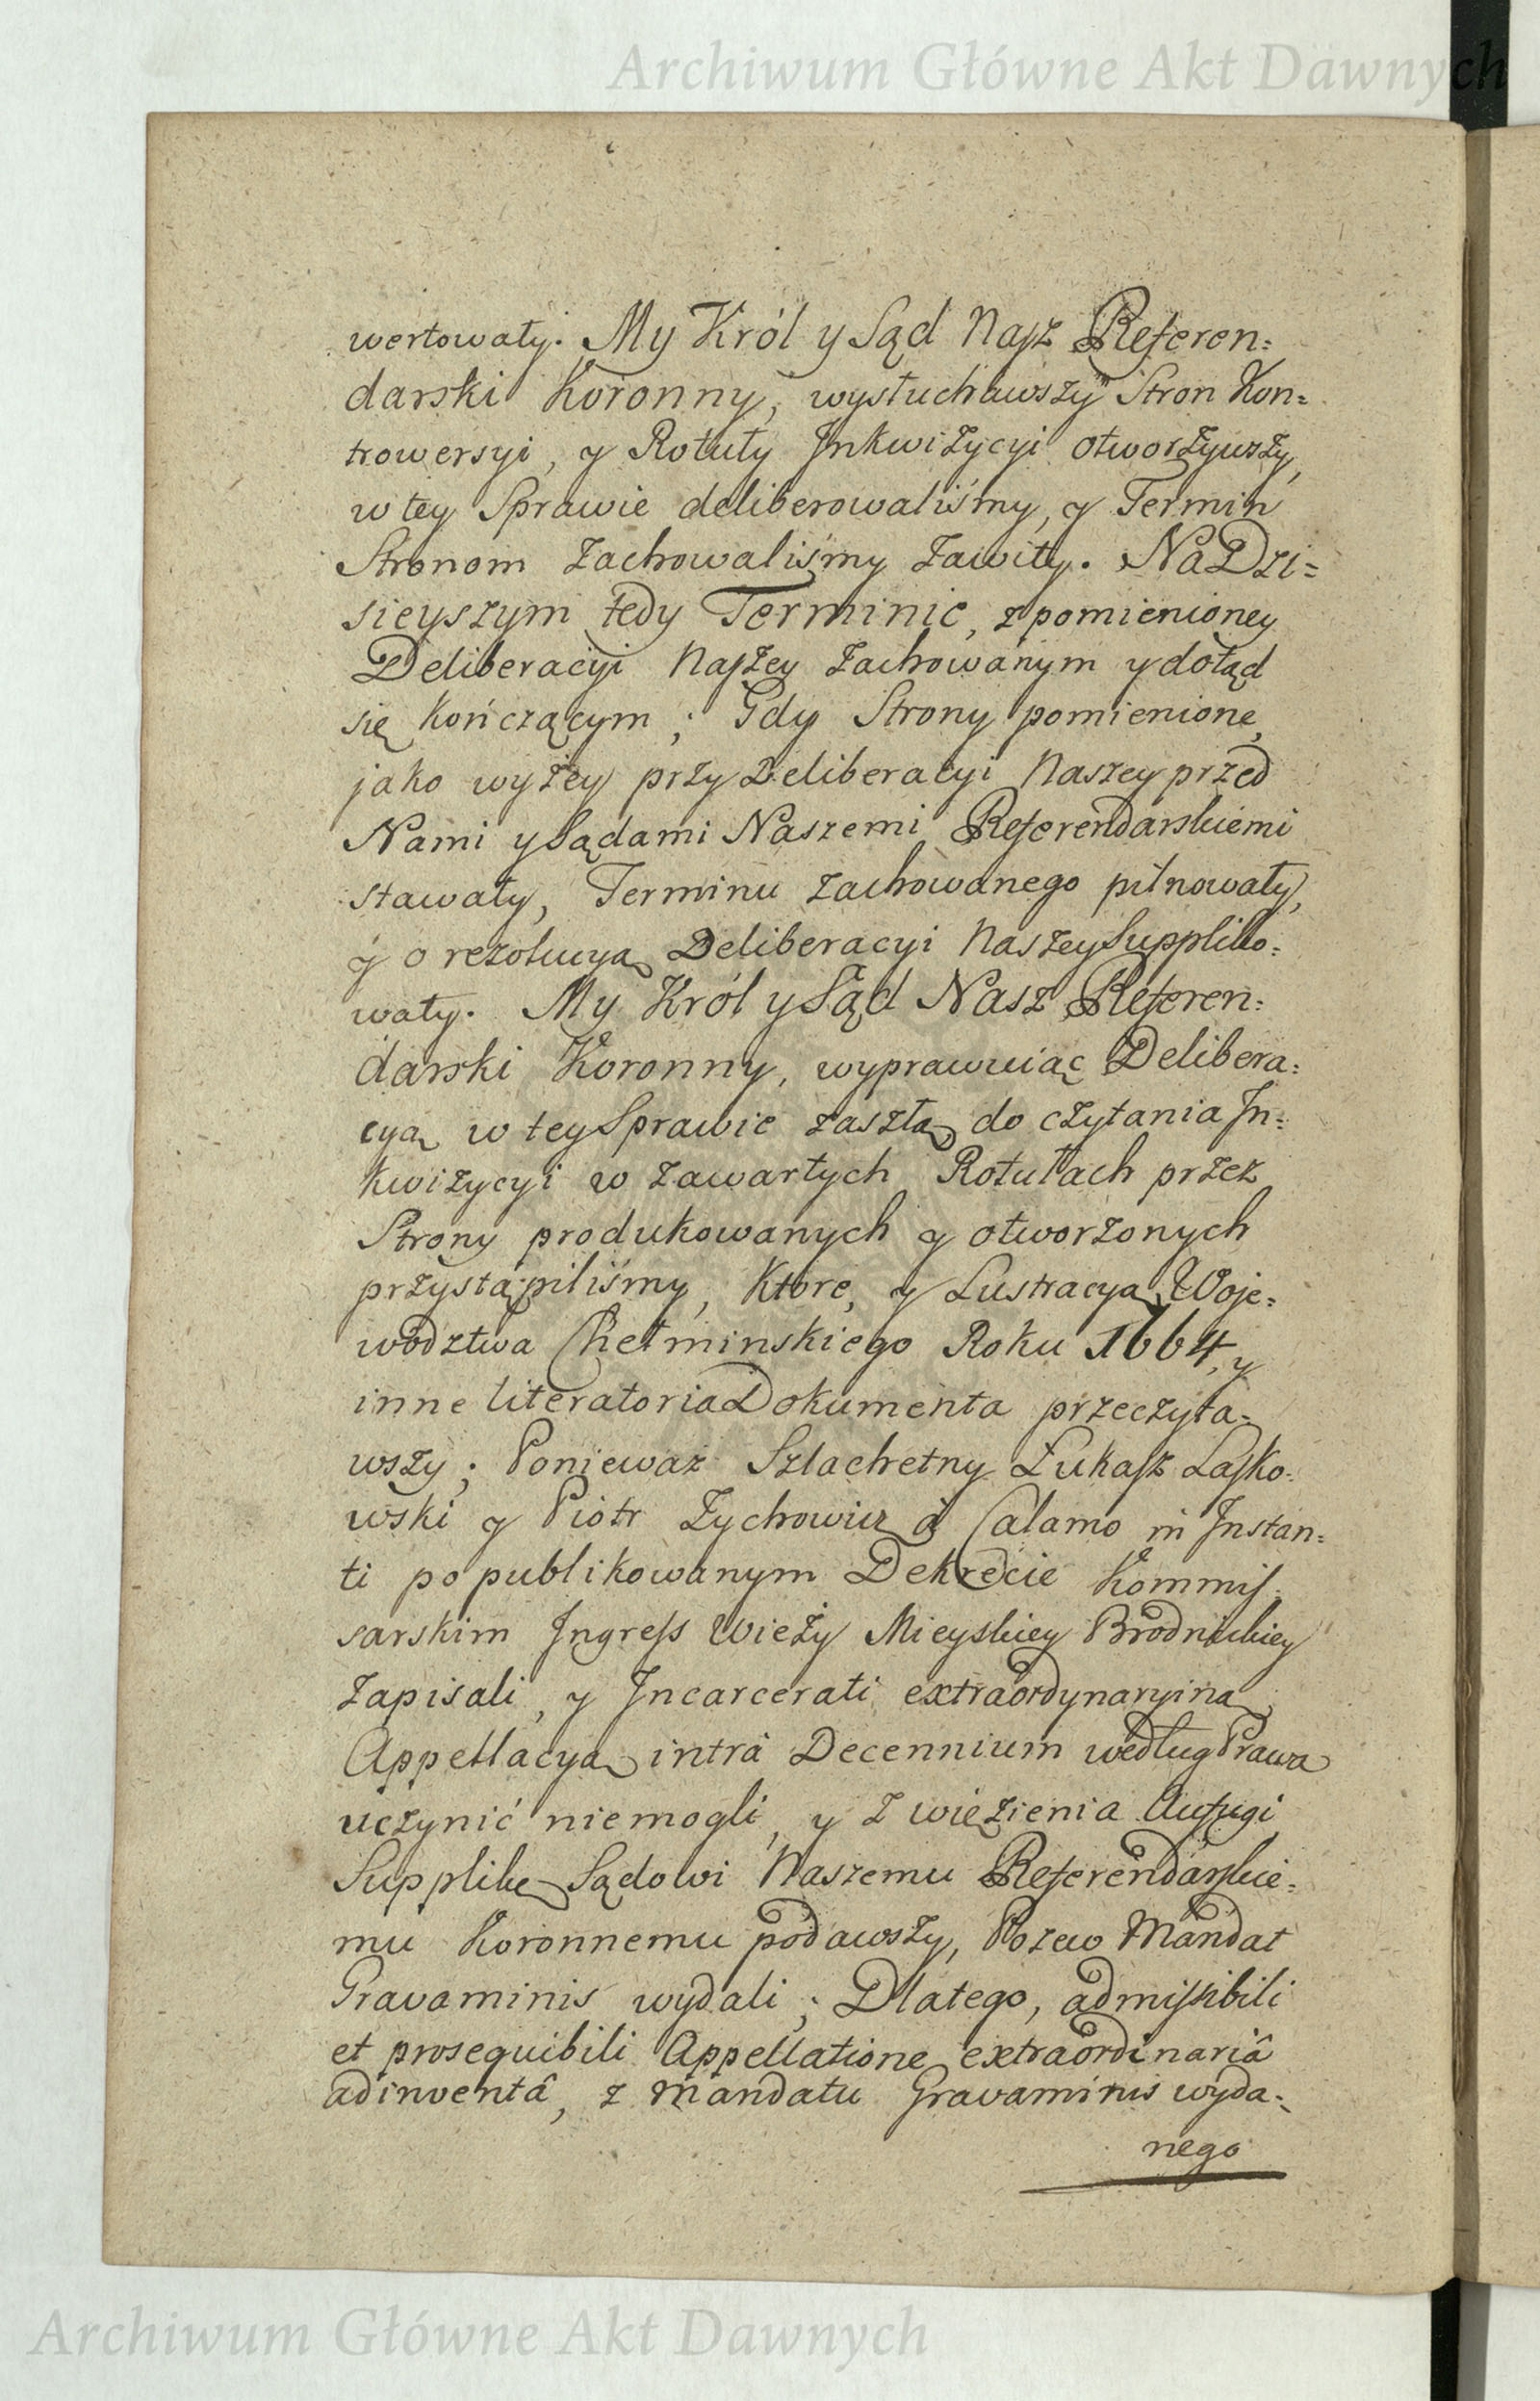 Archiwum Główne Akt Dawnych
wertowały. My Król y Sąd Nasz Referen=
darski Koronny, wysłuchawszy Stron Kon=
trowersyi, y Rotuły Inkwizycyi otworzywszy,
w tey Sprawie deliberowaliśmy, y Termin
Stronom zachowaliśmy zawity. Na Dzi=
sieyszym tedy Terminie, z pomienioney
Deliberacyi Naszey zachowanym y dotąd
się kończącym; Gdy Strony pomienione,
jako wyżey przy Deliberacyi Naszey przed
Nami y Sądami Naszemi Referendarskiemi
stawały, Terminu zachowanego pilnowały,
y o rezolucyą Deliberacyi Naszey Suppliko=
wały. My Król y Sąd Nasz Referen=
darski Koronny, wyprawuiąc Delibera=
cyą w tey Sprawie zaszłą do czytania In=
kwizycyi w zawartych Rotułach przez
Strony produkowanych y otworzonych
przystąpiliśmy, Ktore, y Lustracyą Woje=
wodztwa Chełminskiego Roku 1664, y
inne literatoria Dokumenta przeczyta=
wszy; Ponieważ Szlachetny Łukasz Lasko=
wski y Piotr Zychowicz â Calamo in Instan=
ti po publikowanym Dekrecie Kommis=
sarskim Ingress Wieży Mieyskiey Brodnickiey
zapisali, y Incarcerati extraordynaryiną
Appellacyą intrâ Decennium według Prawa
uczynić niemogli, y z więzienia Aufugi
Supplikę Sądowi Naszemu Referendarskie=
mu Koronnemu podawszy, Pozew Mandat
Gravaminis wydali; Dlatego, admissibili
et prosequibili Appellatione extraordinariâ
adinventâ, z Mandatu Gravaminis wyda=
nego
Archiwum Główne Akt Dawnych